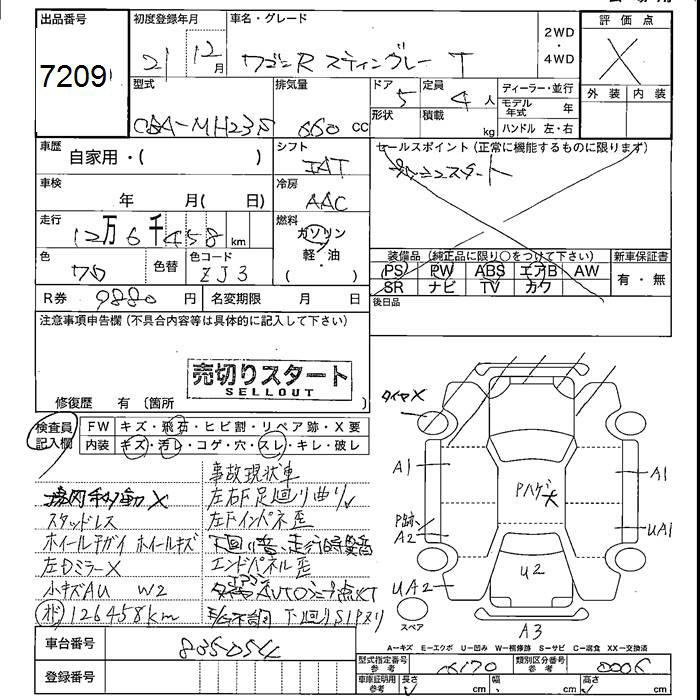 出品番号
7209
初度登録年月
21 12月
車名・グレード
ワゴンR スティングレー T
2WD
・
4WD
評価点
X
外装 内装
型式
CBA-MH23S
排気量
660 cc
ドア
5
形状
定員
4 人
積載
kg
ディーラー・並行
モデル年式 年
ハンドル 左・右
車歴
自家用・( )
シフト
IAT
セールスポイント (正常に機能するものに限ります)
プッシュスタート
車検
年 月( 日)
冷房
AAC
走行
12万6千458 km
燃料
ガソリン
軽・油
( )
色
色替
色コード
ZJ3
装備品 (純正品に限り○をつけて下さい)
PS PW ABS エアB AW
SR ナビ TV カワ
新車保証書
有・無
R券 9880 円
名変期限 月 日
後日品
注意事項申告欄 (不具合内容等は具体的に記入して下さい)
売切りスタート
SELLOUT
修復歴 有 (箇所 )
検査員記入欄
FW キズ・飛石・ヒビ割・リペア跡・X要
内装 キズ・汚レ・コゲ・穴・スレ・キレ・破レ
事故現状車
左右F足廻り曲り
スタッドレス
左Fインパネ歪
ホイールチガイ ホイールキズ
左DミラーX
エンドパネル歪
小キズAU W2
126458km
下廻りS1Pヌリ
タイヤX
A1
A1
Pハゲ大
P跡
A2
UA1
UA2
U2
A3
スペア
A-キズ E-エクボ U-凹み W-補修跡 S-サビ C-腐食 XX-交換済
車台番号
登録番号
型式指定番号
参考
類別区分番号
参考
車庫証明用
参考
長さ cm
幅 cm
高さ cm